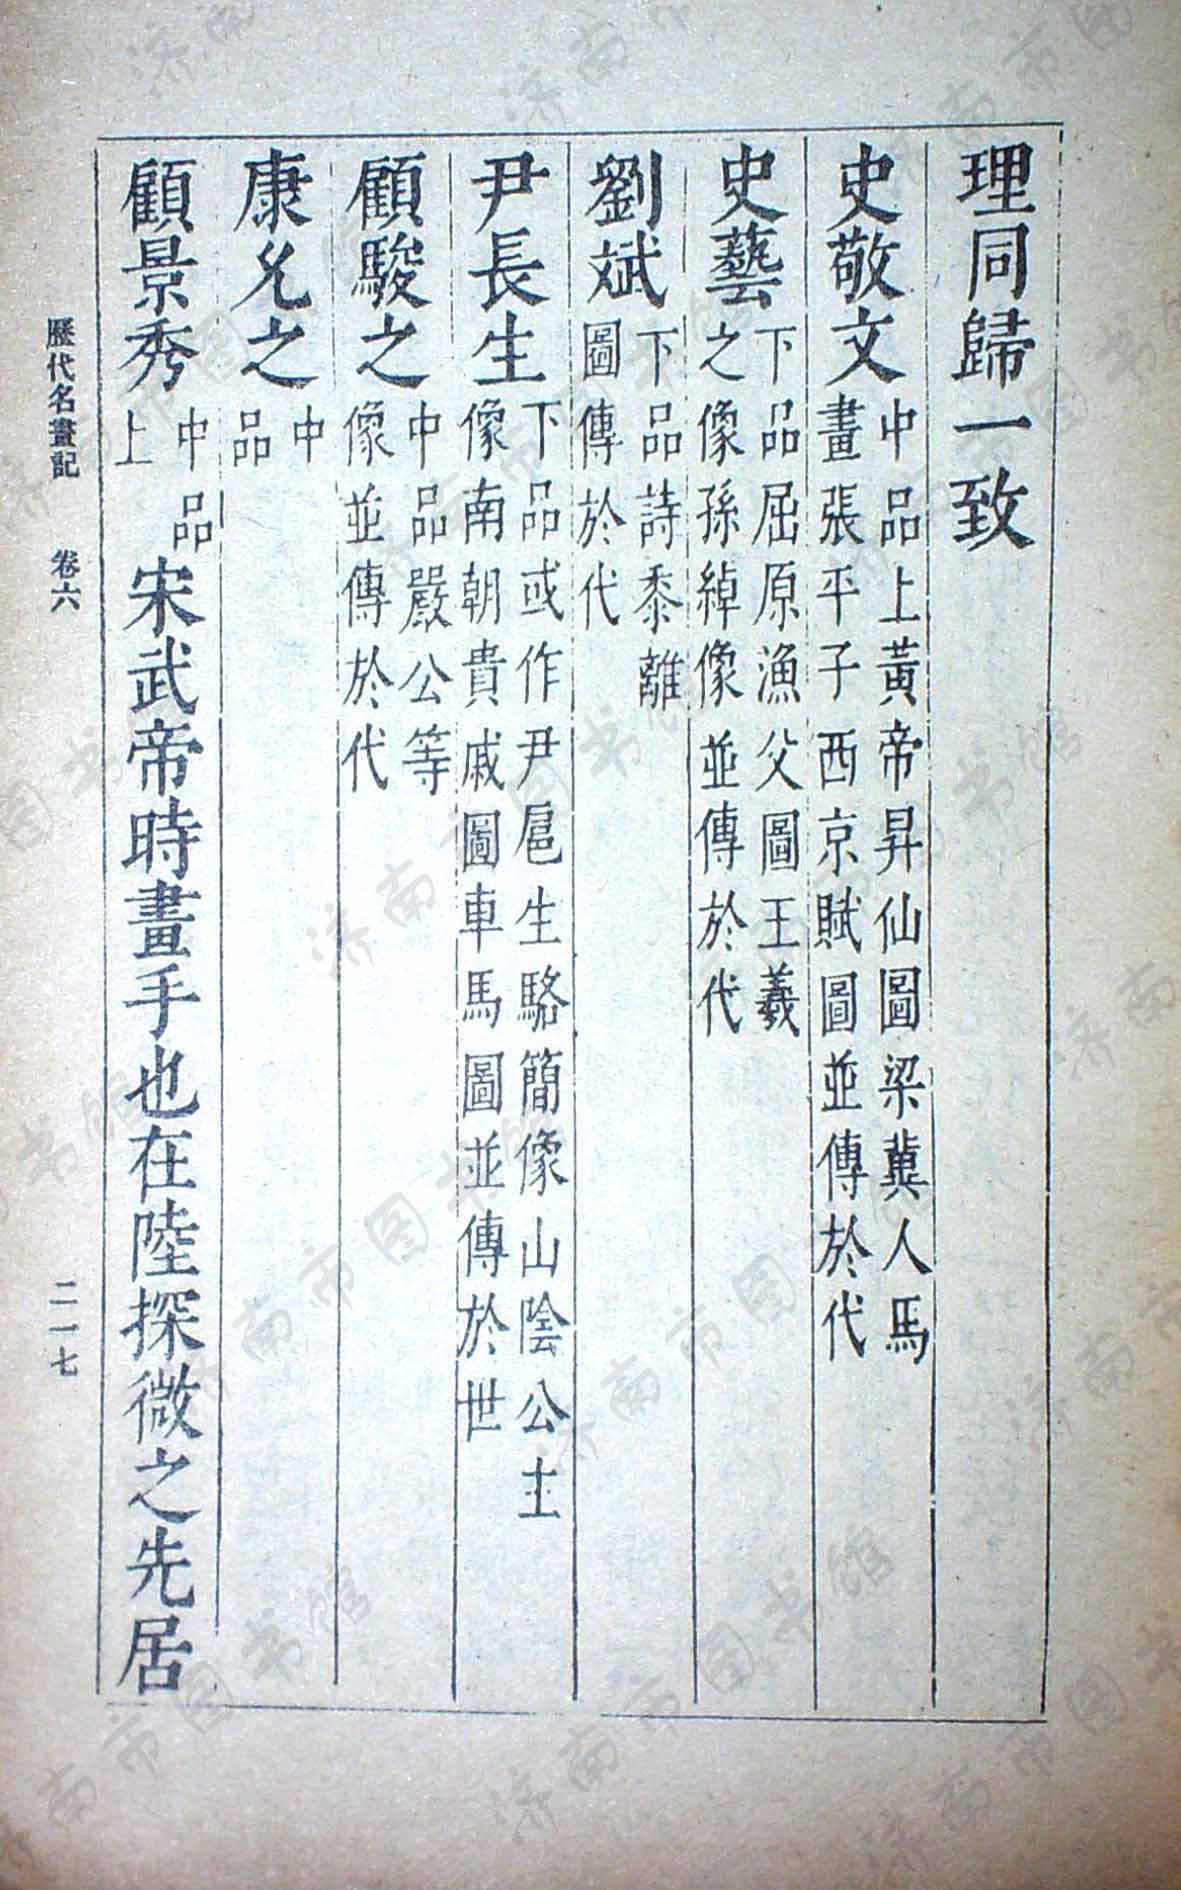 理同歸一致
史敬文中品上黃帝昇仙圖梁冀人馬
畫張平子西京賦圖並傳於代
史藝下品屈原漁父圖王羲
之像孫綽像並傳於代
劉斌下品詩黍離
圖傳於代
尹長生下品或作尹扈生駱簡像山陰公主
像南朝貴戚圖車馬圖並傳於世
顧駿之中品嚴公等
像並傳於代
康允之中
品
顧景秀中品
上
宋武帝時畫手也在陸探微之先居
歷代名畫記 卷六 二一七
济南市图书馆